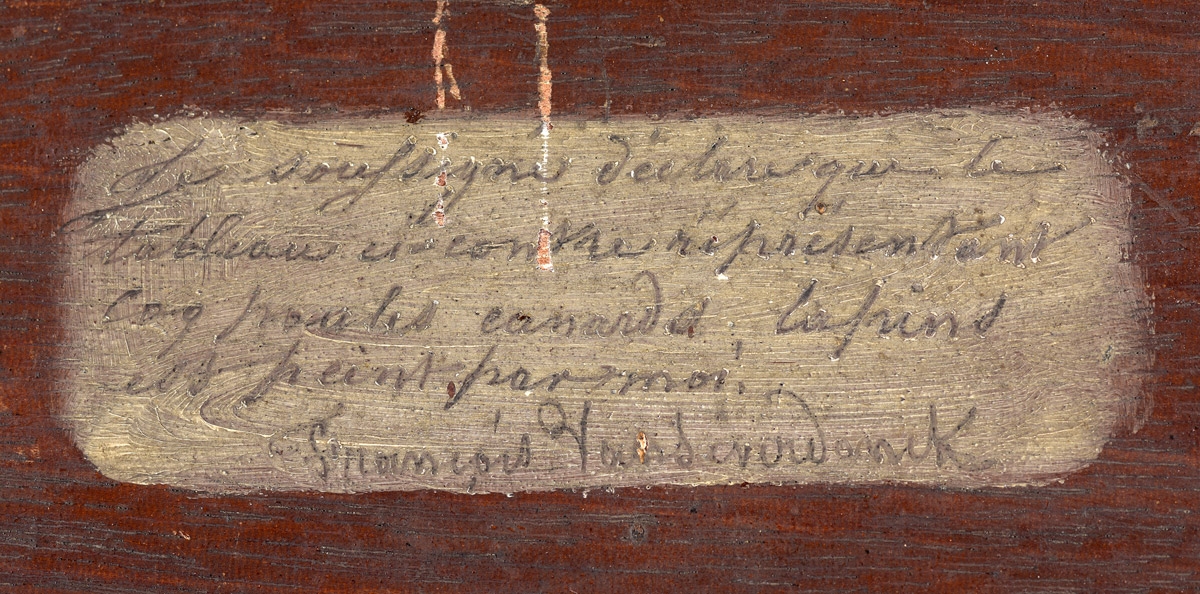 Je soussigné déclare que le
tableau ci-contre représentant
Coq poules canards, lapins
est peint par moi.
François Vandeverdonck